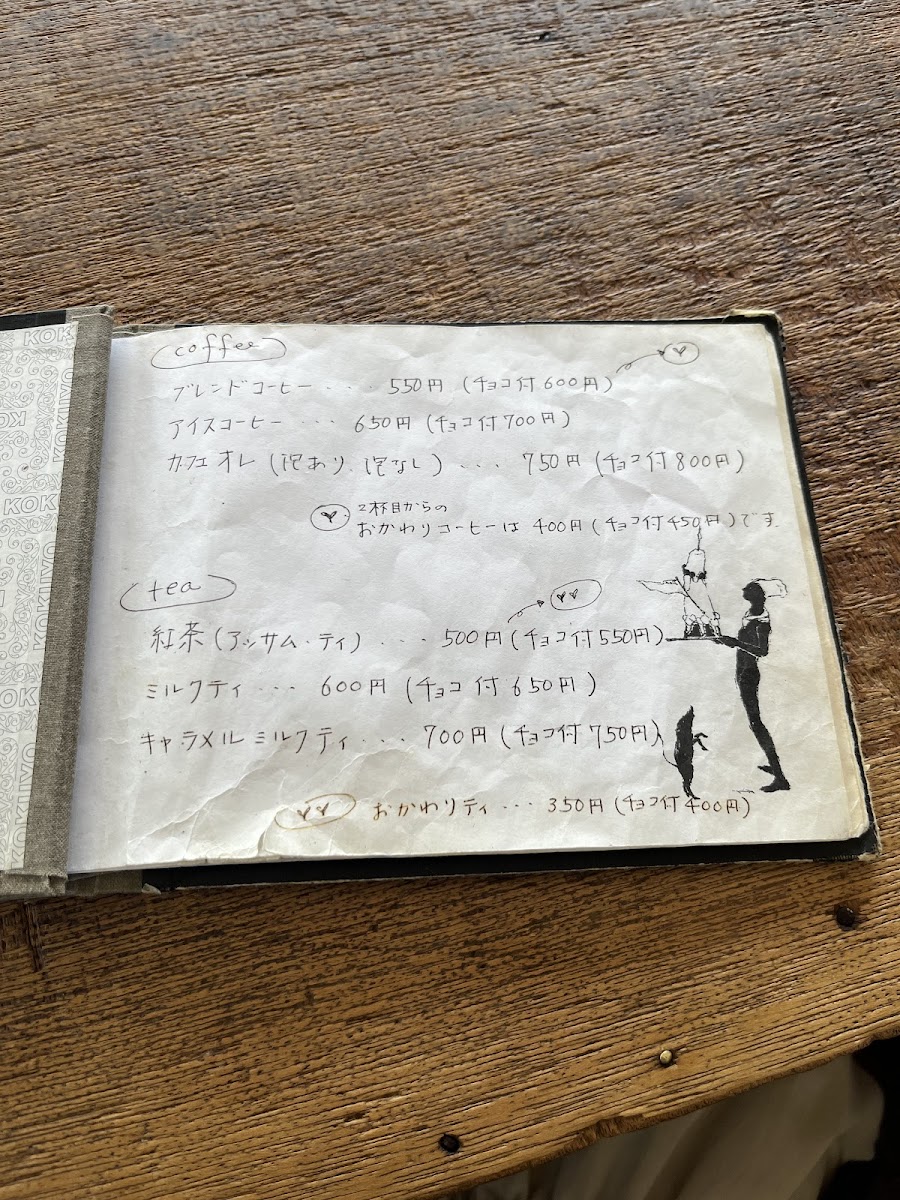 coffee
ブレンドコーヒー・・・550円(チョコ付600円)
アイスコーヒー・・・650円(チョコ付700円)
カフェオレ(泡あり、泡なし)・・・750円(チョコ付800円)
2杯目からの
おかわりコーヒーは400円(チョコ付450円)です.
tea
紅茶(アッサム・ティ)・・・500円(チョコ付550円)
ミルクティ・・・600円(チョコ付650円)
キャラメルミルクティ・・・700円(チョコ付750円)
おかわりティ・・・350円(チョコ付400円)
KOKUYO